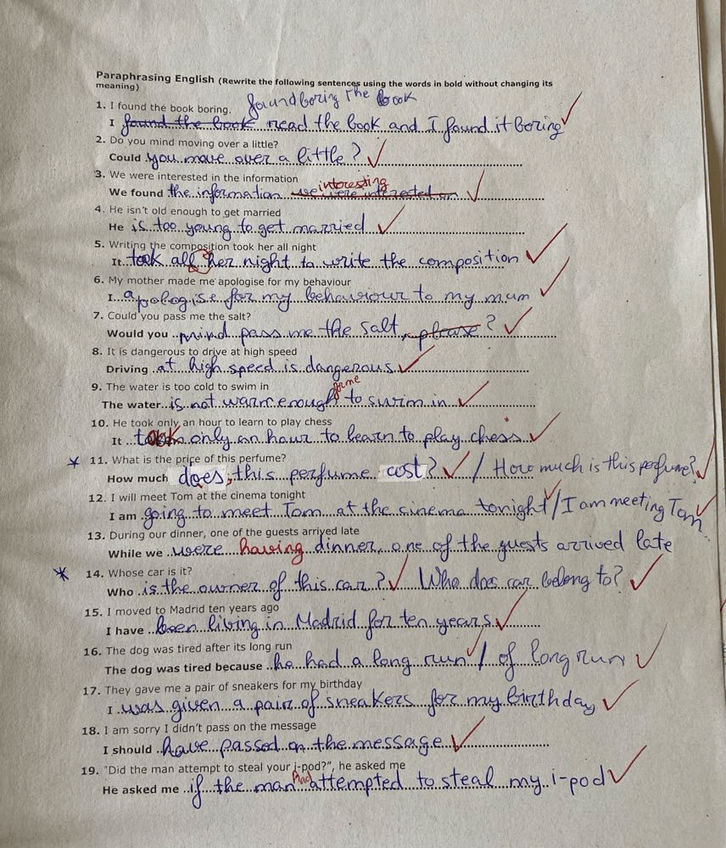 Paraphrasing English (Rewrite the following sentences using the words in bold without changing its
meaning)
found boring the book
1. I found the book boring.
I found the book read the book and I found it boring
2. Do you mind moving over a little?
Could you move over a little?
3. We were interested in the information
interesting
We found the information we were interested on
4. He isn't old enough to get married
He is too young to get married
5. Writing the composition took her all night
It took all her night to write the composition
6. My mother made me apologise for my behaviour
I apologise for my behaviour to my mum
7. Could you pass me the salt?
Would you mind pass me the salt, please?
8. It is dangerous to drive at high speed
Driving at high speed is dangerous
9. The water is too cold to swim in
for me
The water is not warm enough to swim in
10. He took only an hour to learn to play chess
It took only an hour to learn to play chess
11. What is the price of this perfume?
How much does this perfume cost? / How much is this perfume?
12. I will meet Tom at the cinema tonight
I am going to meet Tom at the cinema tonight / I am meeting Tom
13. During our dinner, one of the guests arrived late
While we were having dinner, one of the guests arrived late
14. Whose car is it?
Who is the owner of this car? Who does car belong to?
15. I moved to Madrid ten years ago
I have been living in Madrid for ten years
16. The dog was tired after its long run
The dog was tired because he had a long run / of long run
17. They gave me a pair of sneakers for my birthday
I was given a pair of sneakers for my birthday
18. I am sorry I didn't pass on the message
I should have passed on the message
19. "Did the man attempt to steal your i-pod?", he asked me
had
He asked me if the man attempted to steal my i-pod